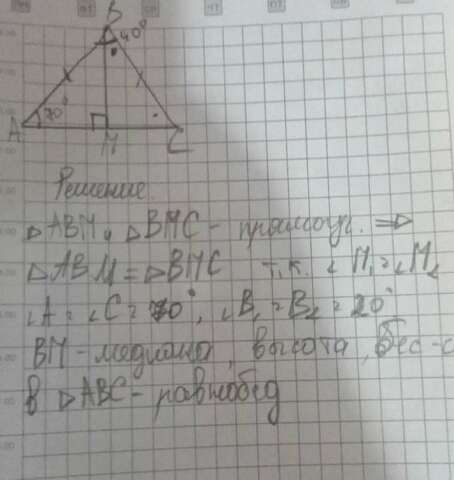 B
40°
70°
A
M
C
Решение.
△ABM и △BMC - прямоуг. ⇒
△ABM = △BMC т.к. ∠M₁=∠M₂
∠A = ∠C = 70°, ∠B₁ = B₂ = 20°
BM - медиана, высота, бес-с
В △ABC - равнобед